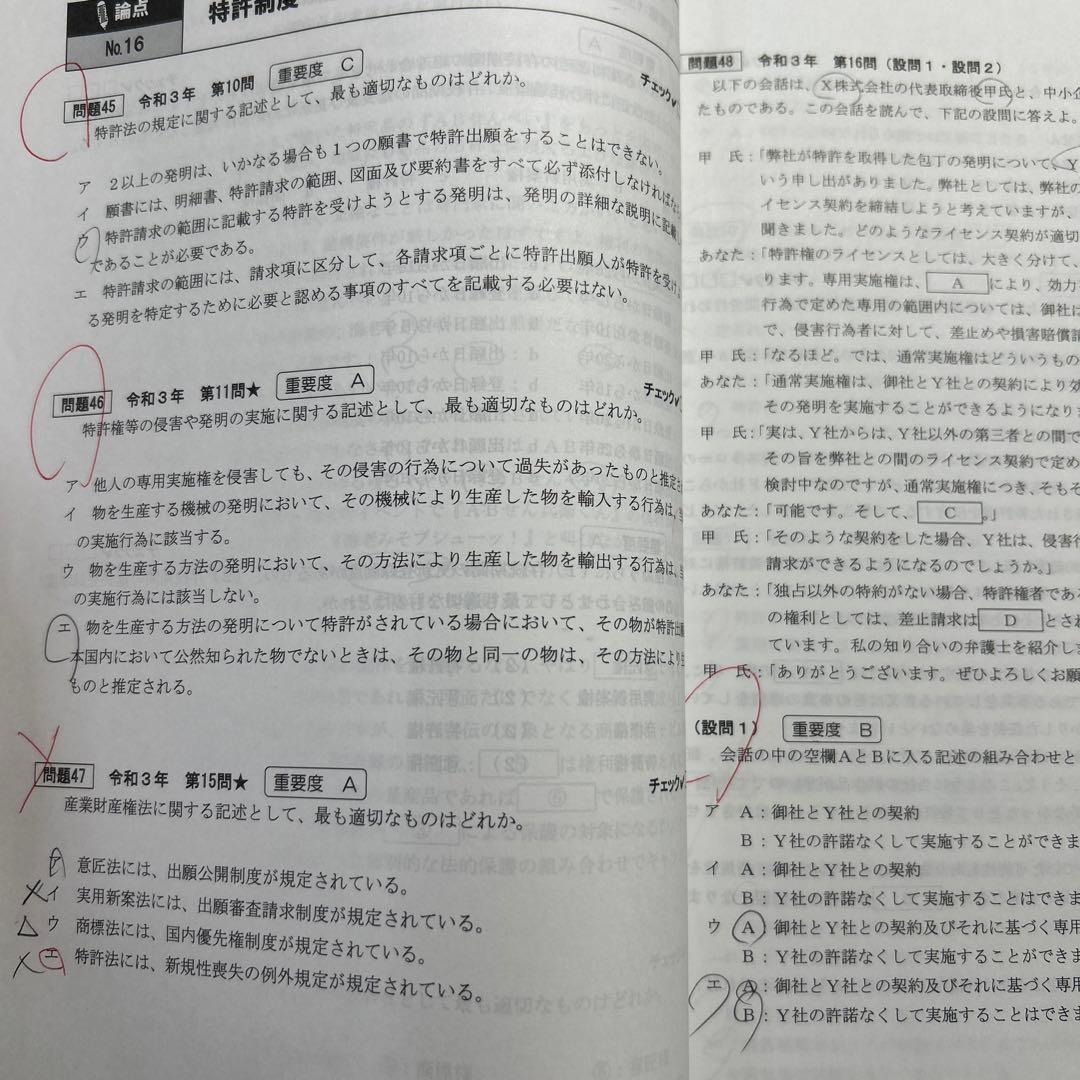 論点
No.16
特許制度
問題45 令和3年 第10問 重要度 C
チェック✓
特許法の規定に関する記述として、最も適切なものはどれか。
ア 2以上の発明は、いかなる場合も1つの願書で特許出願をすることはできない。
イ 願書には、明細書、特許請求の範囲、図面及び要約書をすべて必ず添付しなければなら
ウ 特許請求の範囲に記載する特許を受けようとする発明は、発明の詳細な説明に記載し
であることが必要である。
エ 特許請求の範囲には、請求項に区分して、各請求項ごとに特許出願人が特許を受け
る発明を特定するために必要と認める事項のすべてを記載する必要はない。
問題46 令和3年 第11問★ 重要度 A
チェック✓
特許権等の侵害や発明の実施に関する記述として、最も適切なものはどれか。
ア 他人の専用実施権を侵害しても、その侵害の行為について過失があったものと推定
イ 物を生産する機械の発明において、その機械により生産した物を輸入する行為は、
の実施行為に該当する。
ウ 物を生産する方法の発明において、その方法により生産した物を輸出する行為は、
の実施行為には該当しない。
エ 物を生産する方法の発明について特許がされている場合において、その物が特許出
本国内において公然知られた物でないときは、その物と同一の物は、その方法により
ものと推定される。
問題47 令和3年 第15問★ 重要度 A
チェック✓
産業財産権法に関する記述として、最も適切なものはどれか。
意匠法には、出願公開制度が規定されている。
イ 実用新案法には、出願審査請求制度が規定されている。
△ ウ 商標法には、国内優先権制度が規定されている。
エ 特許法には、新規性喪失の例外規定が規定されている。
問題48 令和3年 第16問(設問1・設問2)
以下の会話は、X株式会社の代表取締役甲氏と、中小企
たものである。この会話を読んで、下記の設問に答えよ。
甲 氏:「弊社が特許を取得した包丁の発明について、Y
いう申し出がありました。弊社としては、弊社の
イセンス契約を締結しようと考えていますが、
聞きました。どのようなライセンス契約が適切
あなた:「特許権のライセンスとしては、大きく分けて、
ります。専用実施権は、 A により、効力
行為で定めた専用の範囲内については、御社に
で、侵害行為者に対して、差止めや損害賠償請
甲 氏:「なるほど。では、通常実施権はどういうもの
あなた:「通常実施権は、御社とY社との契約により効
その発明を実施することができるようになりま
甲 氏:「実は、Y社からは、Y社以外の第三者との間で
その旨を弊社との間のライセンス契約で定め
検討中なのですが、通常実施権につき、そもそ
あなた:「可能です。そして、 C 。」
甲 氏:「そのような契約をした場合、Y社は、侵害行
請求ができるようになるのでしょうか。」
あなた:「独占以外の特約がない場合、特許権者であ
の権利としては、差止請求は D とさ
ています。私の知り合いの弁護士を紹介しま
甲 氏:「ありがとうございます。ぜひよろしくお願
(設問1) 重要度 B
会話の中の空欄AとBに入る記述の組み合わせと
ア A:御社とY社との契約
B:Y社の許諾なくして実施することができま
イ A:御社とY社との契約
B:Y社の許諾なくして実施することはできま
ウ A:御社とY社との契約及びそれに基づく専用
B:Y社の許諾なくして実施することができま
エ A:御社とY社との契約及びそれに基づく専用
B:Y社の許諾なくして実施することはできま